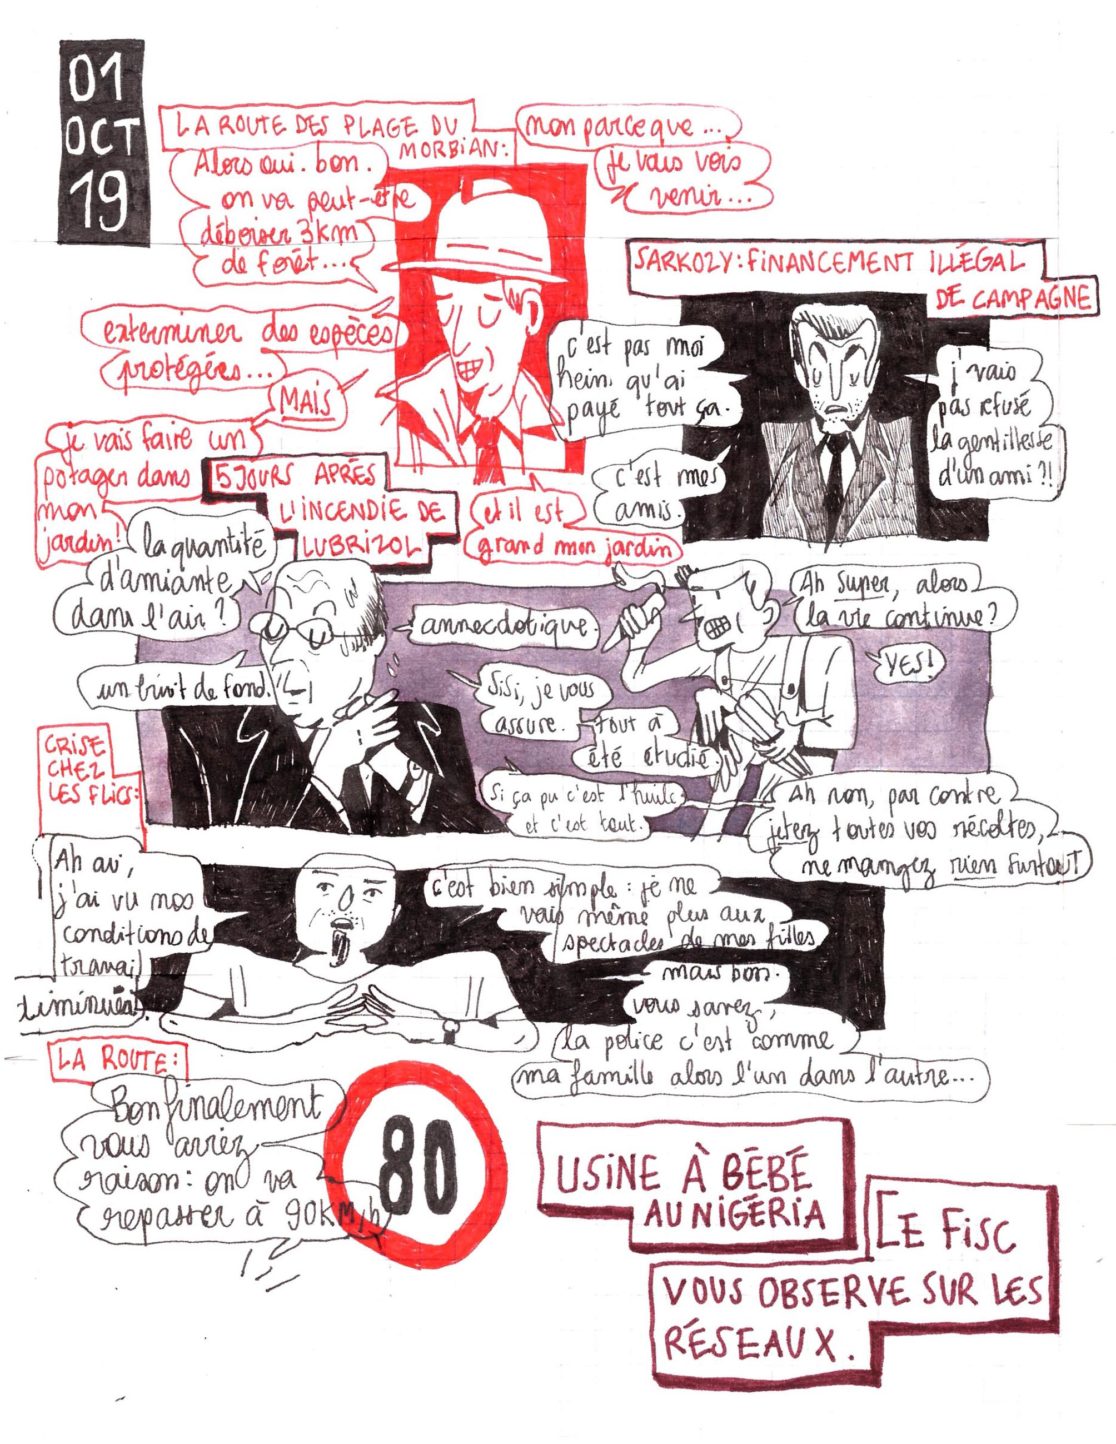 01
OCT
19
LA ROUTE DES PLAGE DU
MORBIAN:
Alors oui. bon.
on va peut-être
déboiser 3km
de forêt...
exterminer des espèces
protégées...
MAIS
je vais faire un
potager dans
mon
jardin!
et il est
grand mon jardin
mon parce que...
je vais vois
venir...
SARKOZY: FINANCEMENT ILLÉGAL
DE CAMPAGNE
c'est pas moi
hein, qu'ai
payé tout ça.
c'est mes
amis.
j'vais
pas refusé
la gentillesse
d'un ami?!
5 JOURS APRÈS
L'INCENDIE DE
LUBRIZOL
la quantité
d'amiante
dans l'air?
annecdotique
un bruit de fond.
Ah super, alors
la vie continue?
YES!
Sisi, je vous
assure.
tout à
été étudié.
Si ça pu c'est l'huile
et c'est tout.
Ah non, par contre
jetez toutes vos récoltes,
ne mangez rien surtout
CRISE
CHEZ
LES FLICS:
Ah oui,
j'ai vu nos
conditions de
travail
diminuer.
c'est bien simple: je ne
vais même plus aux
spectacles de mes filles
mais bon.
vous savez,
la police c'est comme
ma famille alors l'un dans l'autre...
LA ROUTE:
Bon finalement
vous aviez
raison: on va
repasser à 90KM/h
80
USINE À BÉBÉ
AU NIGÉRIA
LE FISC
VOUS OBSERVE SUR LES
RÉSEAUX.